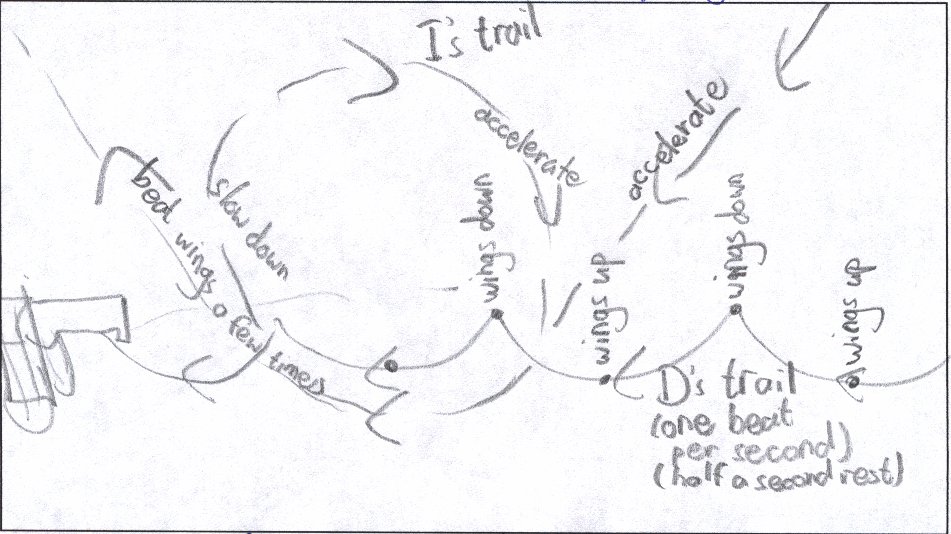 I's trail
accelerate
accelerate
beat wings a few times
slow down
wings down
wings up
wings down
wings up
D's trail
(one beat
per second)
(half a second rest)